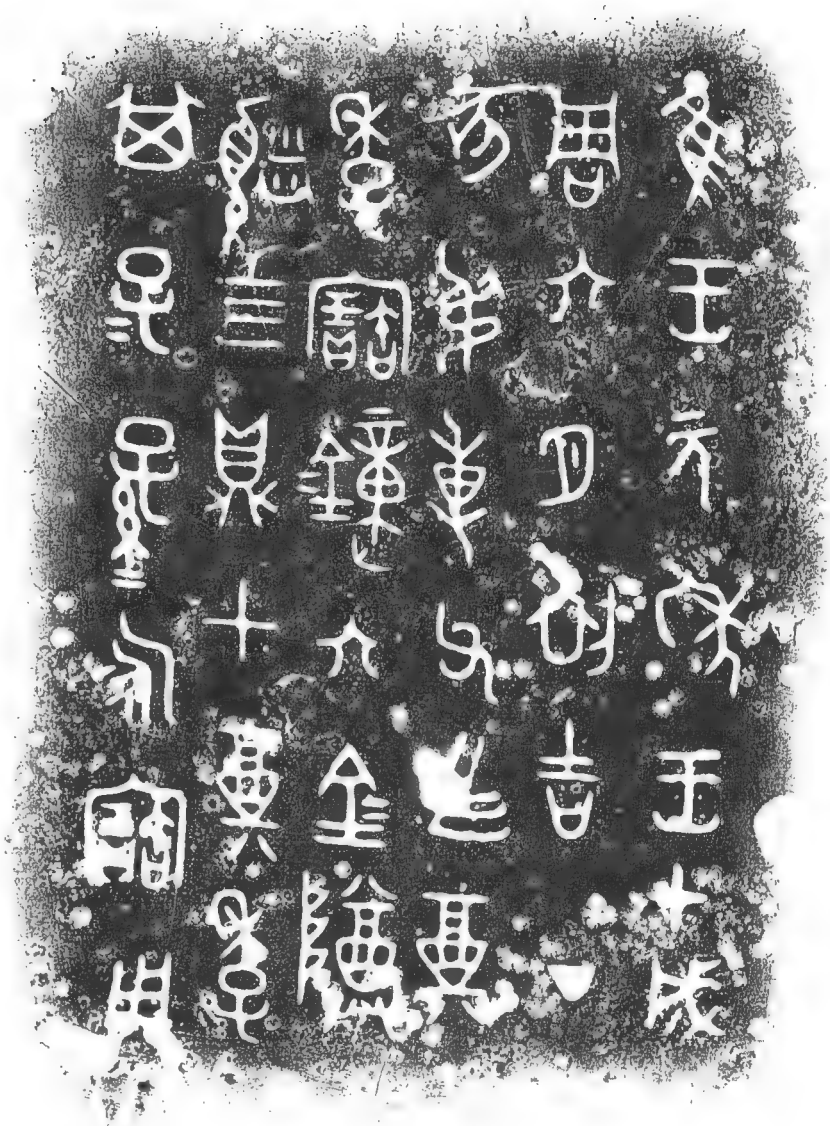 隹王元年王才成
周六月初吉丁
亥叔專父乍奠
季寶鐘六金尊
盨四鼎七奠季
其子=孫=永寶用